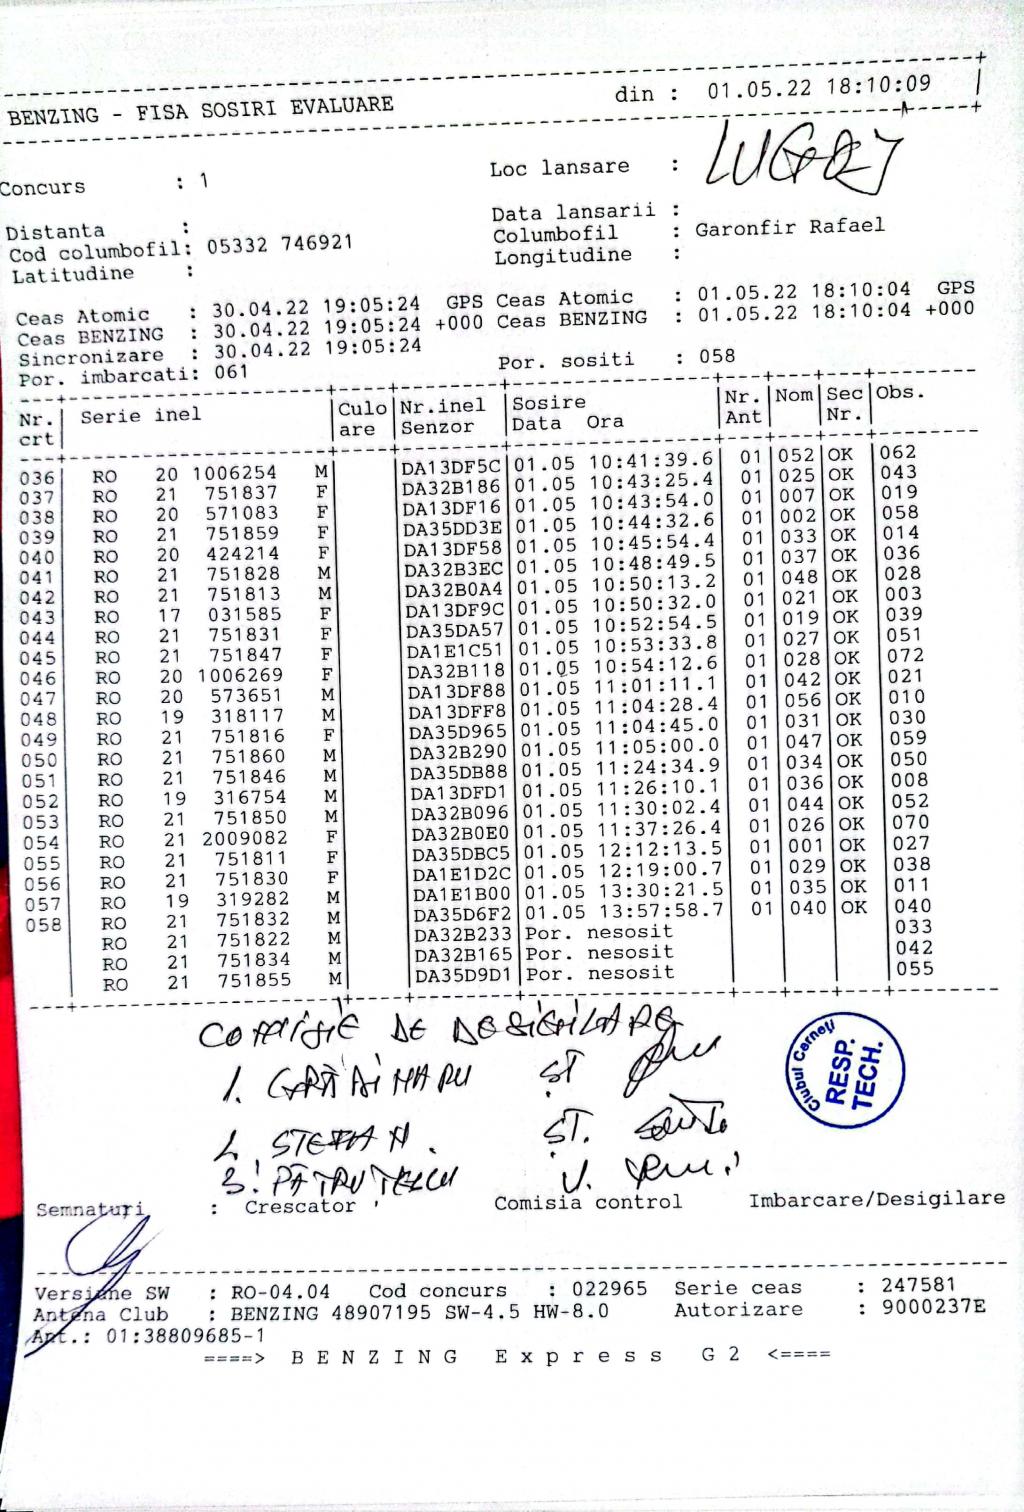 BENZING - FISA SOSIRI EVALUARE din : 01.05.22 18:10:09
Concurs : 1 Loc lansare : LUGOJ
Distanta : Data lansarii :
Cod columbofil: 05332 746921 Columbofil : Garonfir Rafael
Latitudine : Longitudine :
Ceas Atomic : 30.04.22 19:05:24 GPS Ceas Atomic : 01.05.22 18:10:04 GPS
Ceas BENZING : 30.04.22 19:05:24 +000 Ceas BENZING : 01.05.22 18:10:04 +000
Sincronizare : 30.04.22 19:05:24
Por. imbarcati: 061 Por. sositi : 058
Nr. Serie inel Culo Nr.inel Sosire Nr. Nom Sec Obs.
crt are Senzor Data Ora Ant Nr.
036 RO 20 1006254 M DA13DF5C 01.05 10:41:39.6 01 052 OK 062
037 RO 21 751837 F DA32B186 01.05 10:43:25.4 01 025 OK 043
038 RO 20 571083 F DA13DF16 01.05 10:43:54.0 01 007 OK 019
039 RO 21 751859 F DA35DD3E 01.05 10:44:32.6 01 002 OK 058
040 RO 20 424214 F DA13DF58 01.05 10:45:54.4 01 033 OK 014
041 RO 21 751828 M DA32B3EC 01.05 10:48:49.5 01 037 OK 036
042 RO 21 751813 M DA32B0A4 01.05 10:50:13.2 01 048 OK 028
043 RO 17 031585 F DA13DF9C 01.05 10:50:32.0 01 021 OK 003
044 RO 21 751831 F DA35DA57 01.05 10:52:54.5 01 019 OK 039
045 RO 21 751847 F DA1E1C51 01.05 10:53:33.8 01 027 OK 051
046 RO 20 1006269 F DA32B118 01.05 10:54:12.6 01 028 OK 072
047 RO 20 573651 M DA13DF88 01.05 11:01:11.1 01 042 OK 021
048 RO 19 318117 M DA13DFF8 01.05 11:04:28.4 01 056 OK 010
049 RO 21 751816 F DA35D965 01.05 11:04:45.0 01 031 OK 030
050 RO 21 751860 M DA32B290 01.05 11:05:00.0 01 047 OK 059
051 RO 21 751846 M DA35DB88 01.05 11:24:34.9 01 034 OK 050
052 RO 19 316754 M DA13DFD1 01.05 11:26:10.1 01 036 OK 008
053 RO 21 751850 M DA32B096 01.05 11:30:02.4 01 044 OK 052
054 RO 21 2009082 F DA32B0E0 01.05 11:37:26.4 01 026 OK 070
055 RO 21 751811 F DA35DBC5 01.05 12:12:13.5 01 001 OK 027
056 RO 21 751830 F DA1E1D2C 01.05 12:19:00.7 01 029 OK 038
057 RO 19 319282 M DA1E1B00 01.05 13:30:21.5 01 035 OK 011
058 RO 21 751832 M DA35D6F2 01.05 13:57:58.7 01 040 OK 040
RO 21 751822 M DA32B233 Por. nesosit 033
RO 21 751834 M DA32B165 Por. nesosit 042
RO 21 751855 M DA35D9D1 Por. nesosit 055
COMISIE DE DESIGILARE
1. GRĂDINARU ȘT
2. STEFAN. ȘT.
3. PĂTRUTESCU V.
Clubul Cerneți
RESP.
TECH.
Semnaturi : Crescator Comisia control Imbarcare/Desigilare
Versiune SW : RO-04.04 Cod concurs : 022965 Serie ceas : 247581
Antena Club : BENZING 48907195 SW-4.5 HW-8.0 Autorizare : 9000237E
Ant.: 01:38809685-1
====> BENZING Express G2 <====